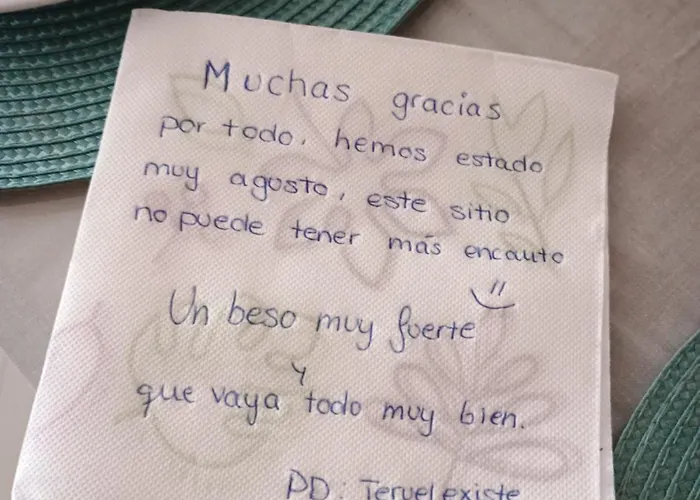 Muchas gracias
por todo, hemos estado
muy agusto, este sitio
no puede tener más encanto
Un beso muy fuerte
y
que vaya todo muy bien.
PD: Teruel existe